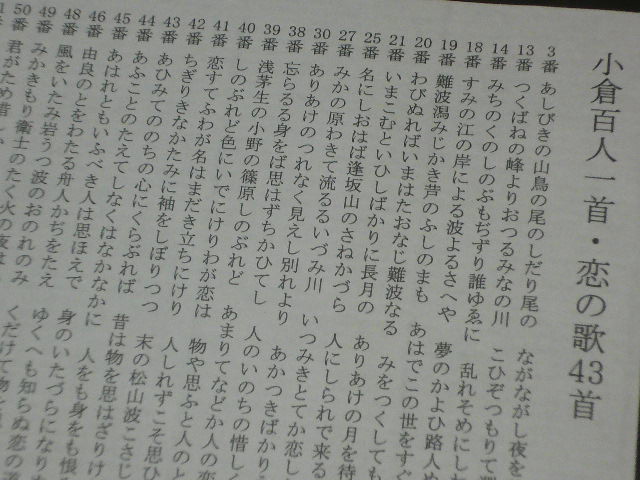 小倉百人一首・恋の歌43首
3番 あしびきの山鳥の尾のしだり尾の ながながし夜を
13番 つくばねの峰よりおつるみなの川 こひぞつもりて
14番 みちのくのしのぶもぢずり誰ゆゑに 乱れそめにし
18番 すみの江の岸による波よるさへや 夢のかよひ路人め
19番 難波潟みじかき芦のふしのまも あはでこの世をすぐ
20番 わびぬればいまはたおなじ難波なる みをつくしても
21番 いまこむといひしばかりに長月の ありあけの月を待
25番 名にしおはば逢坂山のさねかづら 人にしられで来る
27番 みかの原わきて流るるいづみ川 いつみきとてか恋し
30番 ありあけのつれなく見えし別れより あかつきばかり
38番 忘らるる身をば思はずちかひてし 人のいのちの惜し
39番 浅茅生の小野の篠原しのぶれど あまりてなどか人の恋
40番 しのぶれど色にいでにけりわが恋は 物や思ふと人の
41番 恋すてふわが名はまだき立ちにけり 人しれずこそ思ひ
42番 ちぎりきなかたみに袖をしぼりつつ 末の松山波こさじ
43番 あひみてののちの心にくらぶれば 昔は物を思はざりけ
44番 あふことのたえてしなくはなかなかに 人をも身をも恨
45番 あはれともいふべき人は思ほえで 身のいたづらになり
46番 由良のとをわたる舟人かぢをたえ ゆくへも知らぬ恋の
48番 風をいたみ岩うつ波のおのれのみ くだけて物を
49番 みかきもり衛士のたく火の夜は
50番 君がため惜し